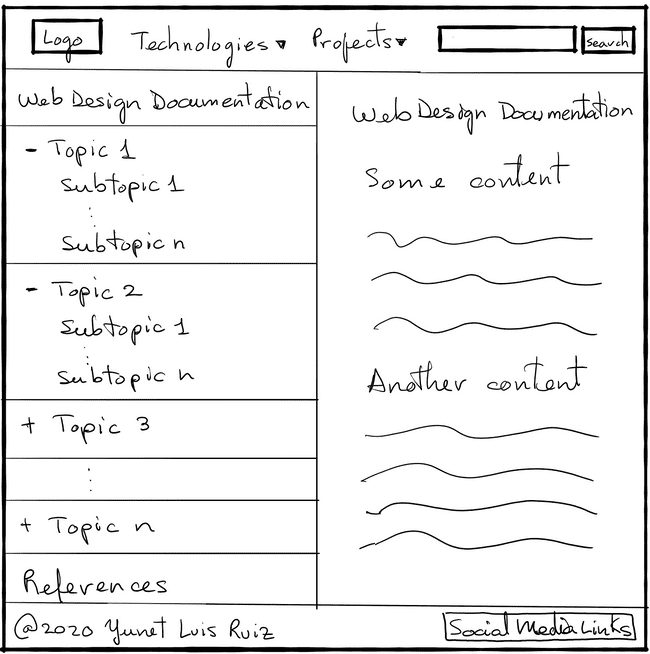 Logo Technologies ▾ Projects ▾ Search
Web Design Documentation
- Topic 1
Subtopic 1
⋮
Subtopic n
- Topic 2
Subtopic 1
⋮
Subtopic n
+ Topic 3
⋮
+ Topic n
References
Web Design Documentation
Some content
Another content
@2020 Yunet Luis Ruiz
Social Media Links